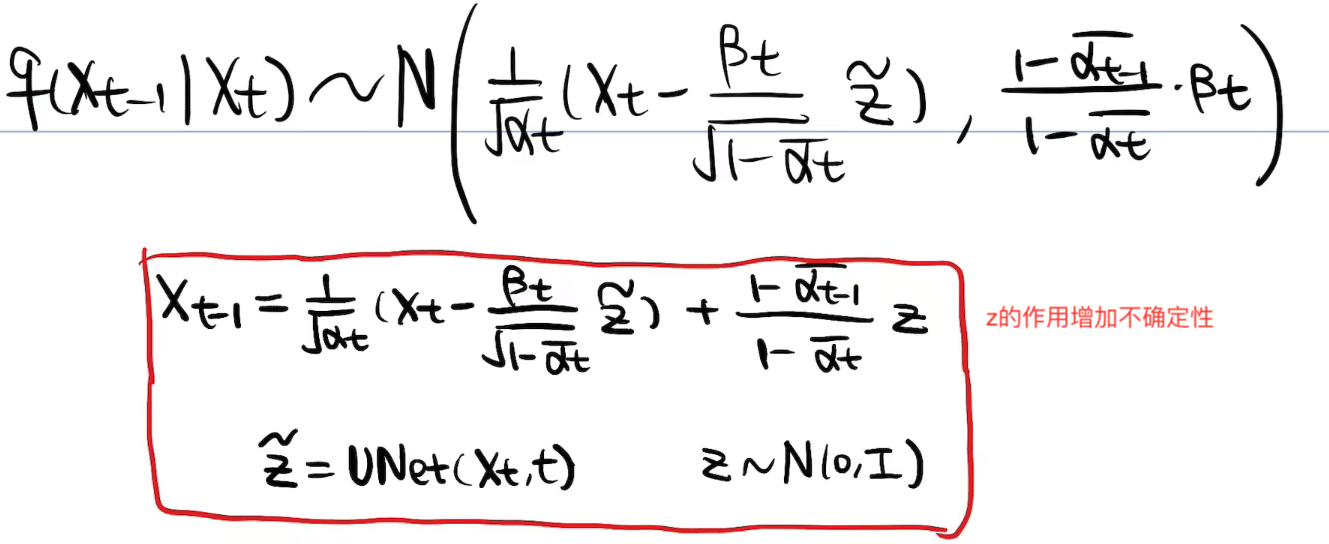 q(Xt-1|Xt) ~ N( 1/√αt (Xt - βt/√(1-α̅t) z̃), (1-α̅t-1)/(1-α̅t) · βt )
Xt-1 = 1/√αt (Xt - βt/√(1-α̅t) z̃) + (1-α̅t-1)/(1-α̅t) z
z的作用增加不确定性
z̃ = UNet(Xt,t) z~N(0,I)